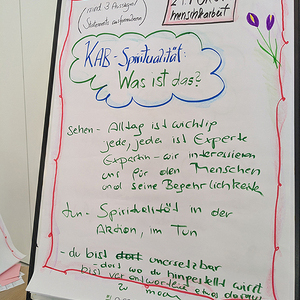 mind 3 Aussagen/
Statements
21.
menschkarbeit
KAB-Spiritualität:
Was ist das?
sehen - Alltag ist wichtig
jede, jeder ist Experte
Expertin - wir interessieren
uns für den Menschen
und seine Begehrlichkeiten
tun - Spiritualität in der
Aktion, im Tun
- du bist dort unersetzbar
- dort wo du hingestellt wirst
bist verantwortlich etwas daraus
zu machen